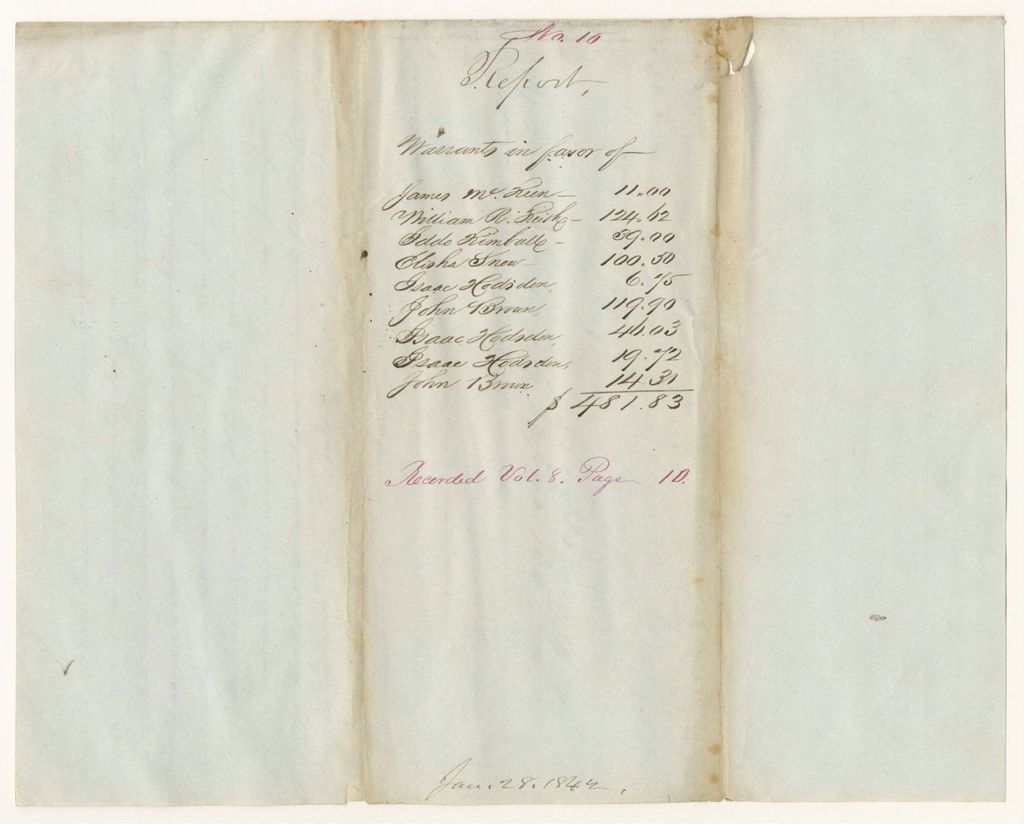 No. 16
Report,
Warrants in favor of
James Mc. Keen - 11.00
William R. Keith - 124.62
Iddo Kimball - 39.00
Elisha Snow - 100.50
Isaac Hodsdon, 6.75
John Brown, 119.90
Isaac Hodsdon, 46.03
Isaac Hodsdon, 19.72
John Brown 14.31
$ 481.83
Recorded Vol. 8. Page 10.
Jan. 28. 1842.